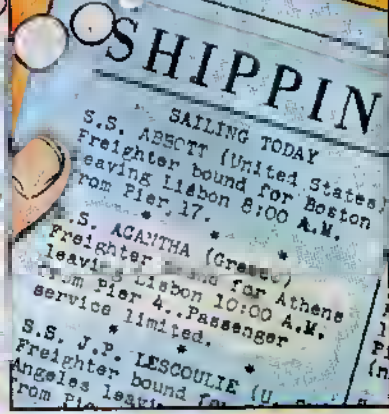 SHIPPIN
SAILING TODAY
S.S. ABBOTT (United States)
Freighter bound for Boston
leaving Lisbon 8:00 A.M.
from Pier 17.
* * *
S.S. AGANTHA (Greece)
Freighter bound for Athens
leaving Lisbon 10:00 A.M.
from Pier 4..Passenger
service limited.
* * *
S.S. J.P. LESCOULIE (U.
Freighter bound for
Angeles
from